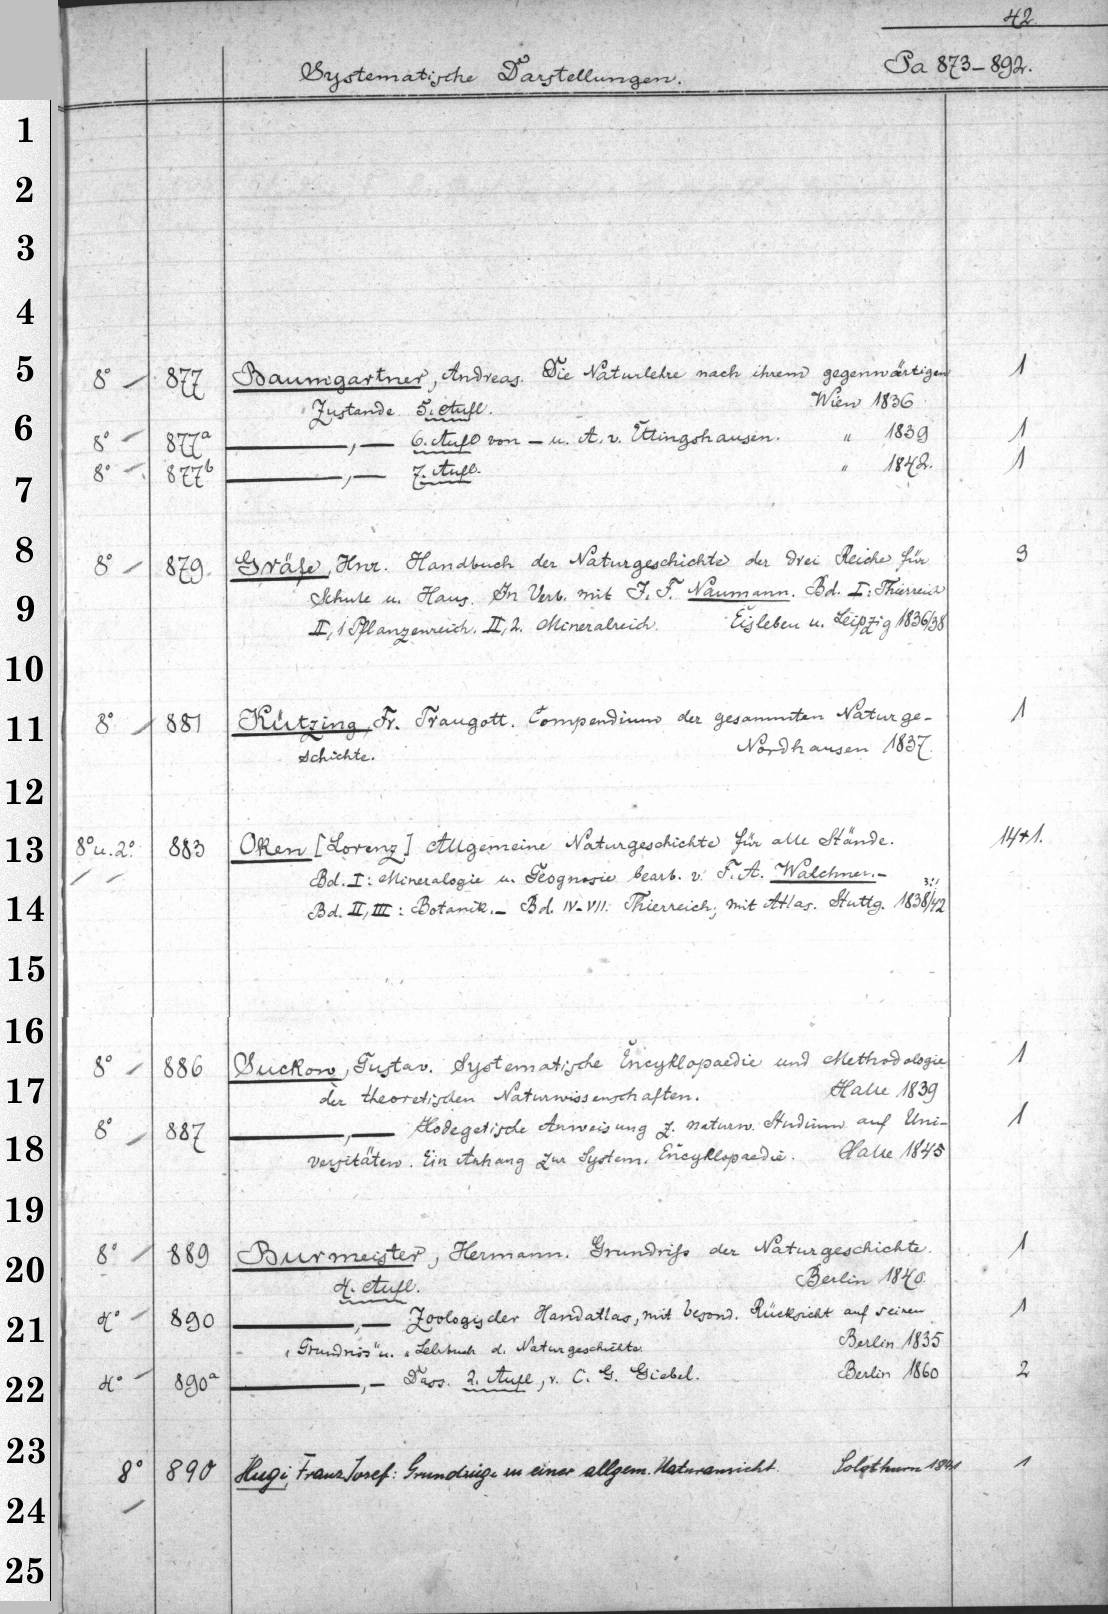 42.
Systematische Darstellungen. Pa 873-892.
1
2
3
4
5
8° 877 Baumgartner, Andreas. Die Naturlehre nach ihrem gegenwärtigen 1
Zustande 5. Aufl. Wien 1836
6
8° 877a —,— 6. Aufl von — u. A. v. Ettingshausen. " 1839 1
8° 877b —,— 7. Aufl. " 1842. 1
7
8
8° 879. Gräfe, Hnr. Handbuch der Naturgeschichte der drei Reiche für 3
9
Schule u. Haus. In Verb. mit J. F. Naumann. Bd. I: Thierreich
II, 1 Pflanzenreich. II, 2. Mineralreich. Eisleben u. Leipzig 1836/38
10
11
8° 881 Kützing, Fr. Traugott. Compendium der gesammten Naturge- 1
schichte. Nordhausen 1837.
12
13
8° u. 2°. 883 Oken [Lorenz] Allgemeine Naturgeschichte für alle Stände. 14+1.
Bd. I: Mineralogie u. Geognosie bearb. v. F. A. Walchner.-
14
Bd. II, III: Botanik.- Bd. IV-VII: Thierreich; mit Atlas. Stuttg. 1838/42
15
16
8° 886 Suckow, Gustav. Systematische Encyklopaedie und Methodologie 1
17
der theoretischen Naturwissenschaften. Halle 1839
8° 887 —,— Hodegetische Anweisung z. naturw. Studium auf Uni- 1
18
versitäten. Ein Anhang zur System. Encyklopaedie. Halle 1845
19
8° 889 Burmeister, Hermann. Grundriss der Naturgeschichte. 1
20
4. Aufl. Berlin 1840.
4° 890 —,— Zoologischer Handatlas, mit besond. Rücksicht auf seinen 1
21
"Grundriss" u. "Lehrbuch d. Naturgeschichte. Berlin 1835
4° 890a —,— Dass. 2. Aufl., v. C. G. Giebel. Berlin 1860 2
22
23
8° 890 Hugi, Franz Josef: Grundzüge zu einer allgem. Naturansicht. Solothurn 1841 1
24
25